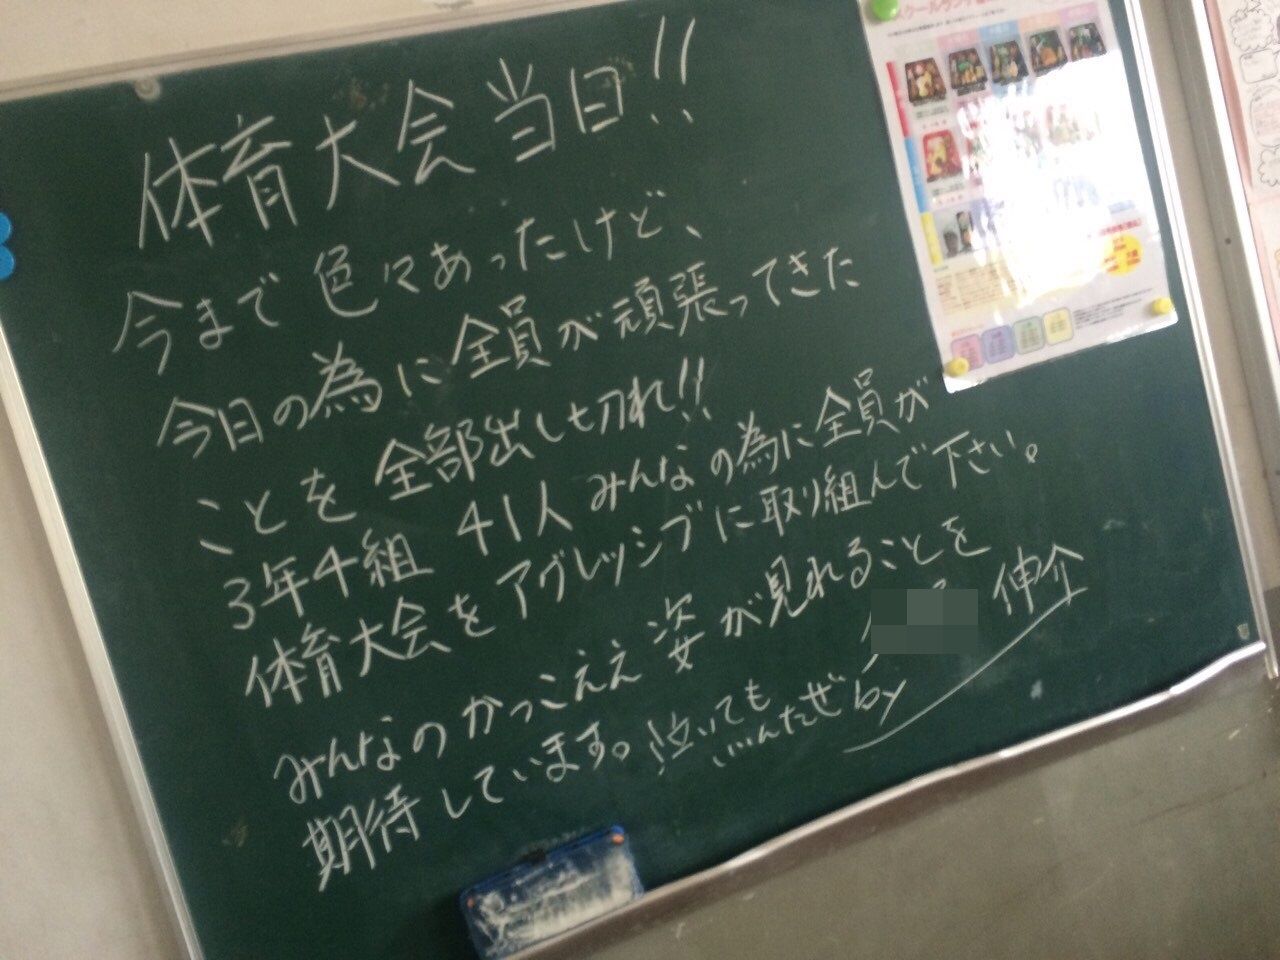 体育大会当日!!
今まで色々あったけど、
今日の為に全員が頑張ってきた
ことを全部出し切れ!!
3年4組 41人 みんなの為に全員が
体育大会をアグレッシブに取り組んで下さい。
みんなのかっこええ姿が見れることを
期待しています。
泣いても
いいんだぜ
by 伸介
スクールランチ